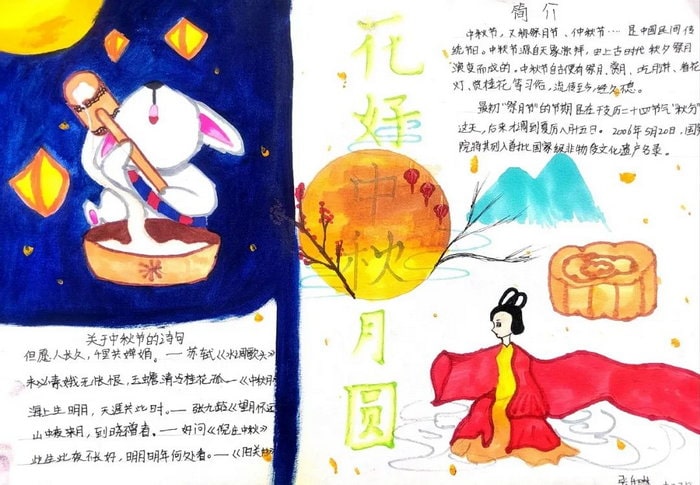 简介
中秋节，又称祭月节、仲秋节…… 是中国民间传
统节日。中秋节源自天象崇拜，由上古时代秋夕祭月
演变而成的。中秋节自古便有祭月、赏月、吃月饼、看花
灯、赏桂花等习俗，流传至今，经久不息。
最初"祭月节"的节期是在干支历二十四节气"秋分"
这天，后来才调到夏历八月十五日。2006年5月20日，国
院将其列入首批国家级非物质文化遗产名录。
花好
中秋
月圆
关于中秋节的诗句
但愿人长久，千里共婵娟。——苏轼《水调歌头》
未必素娥无怅恨，玉蟾清冷桂花孤——《中秋月
海上生明月，天涯共此时。——张九龄《望月怀远
山中夜来月，到晓
此生此夜不长好，明月明年何处看。——《阳关